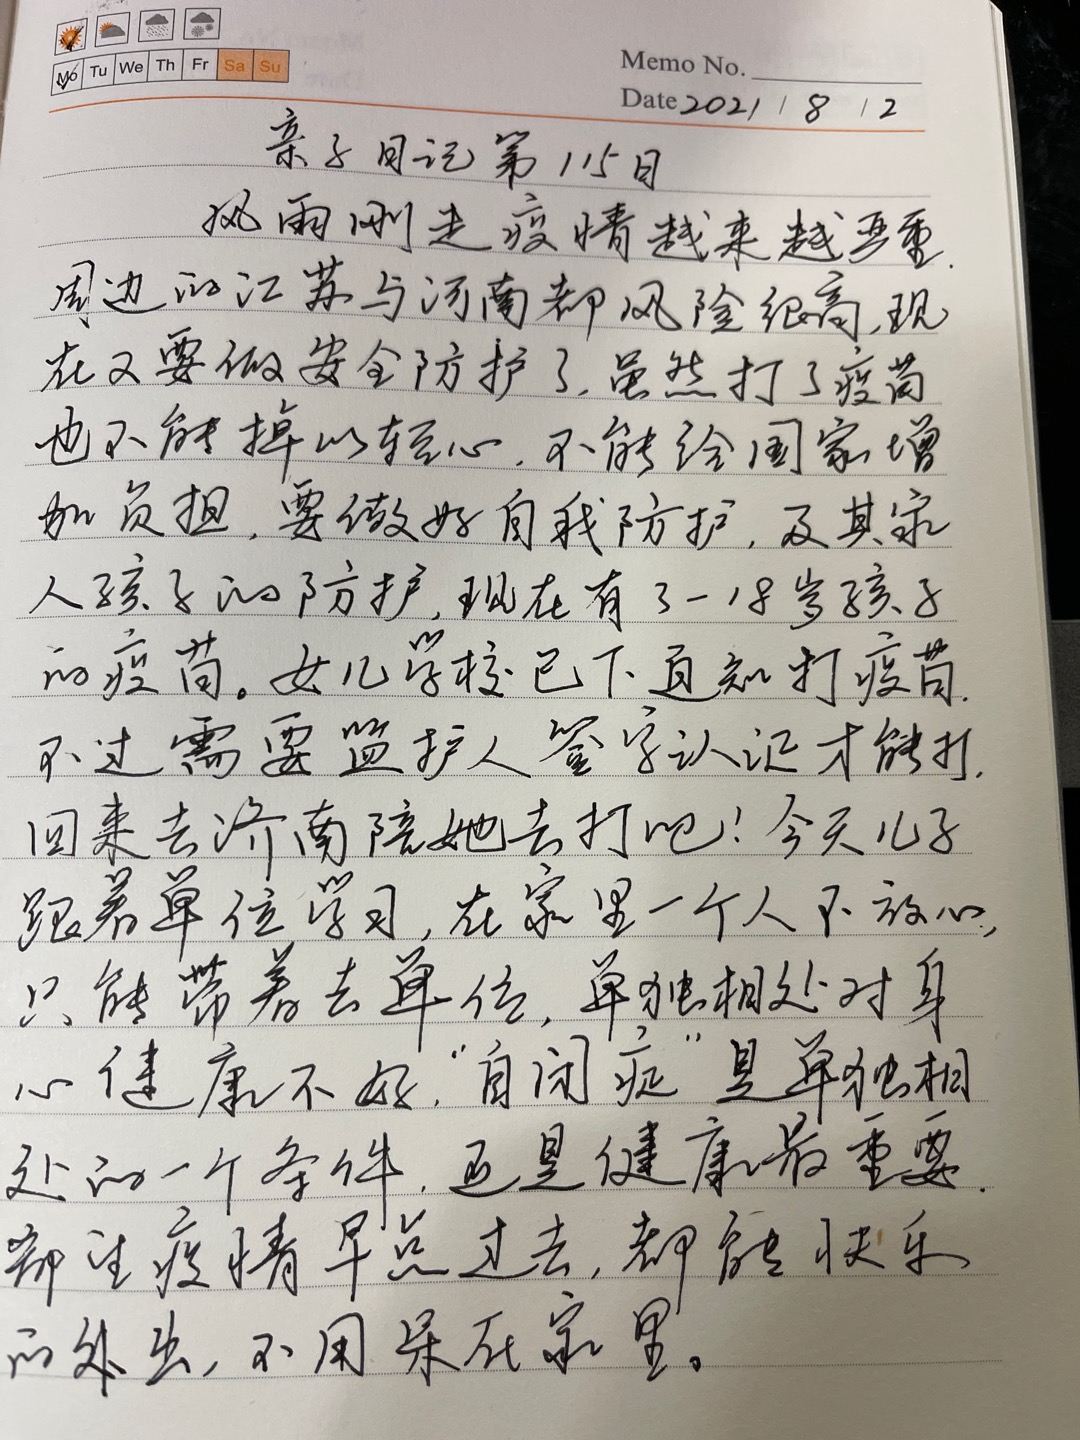 Mo Tu We Th Fr Sa Su
Memo No.
Date 2021 / 8 / 2
亲子日记第115日
风雨刚走疫情越来越严重.
周边的江苏与河南都风险很高,现
在又要做安全防护了,虽然打了疫苗
也不能掉以轻心,不能给国家增
加负担,要做好自我防护,及其家
人孩子的防护,现在有3-18岁孩子
的疫苗。女儿学校已下通知打疫苗.
不过需要监护人签字认证才能打.
回来去济南陪她去打吧!今天儿子
跟着单位学习,在家里一个人不放心,
只能带着去单位,单独相处对身
心健康不好,“自闭症”是单独相
处的一个条件,还是健康最重要.
都让疫情早点过去,都能快乐
的外出,不用呆在家里。